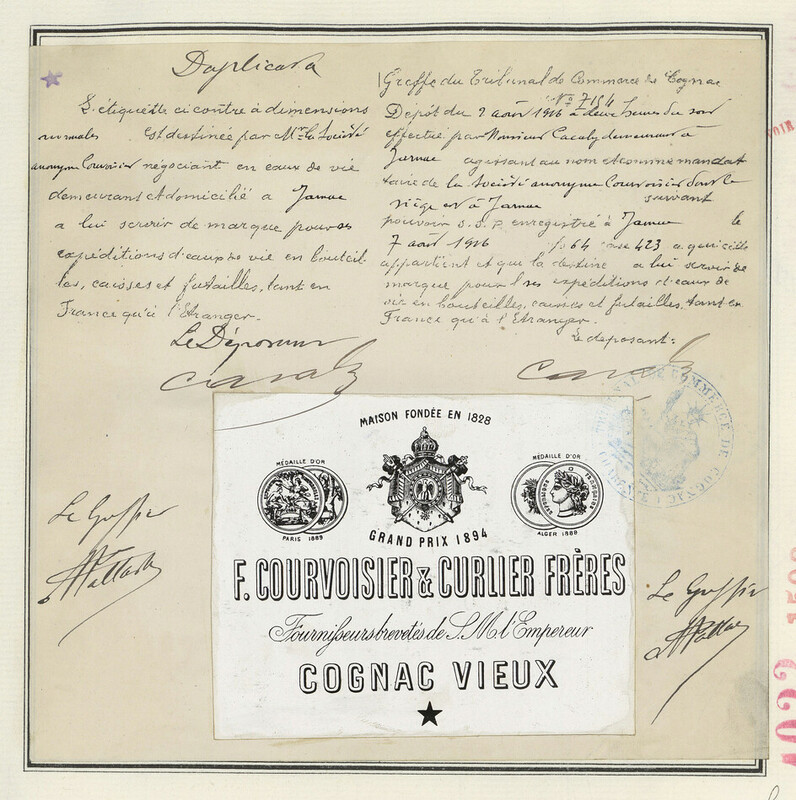 Duplicata
L'étiquette ci contre à dimensions
normales Est destinée par Mr la Société
anonyme Courvoisier négociant en eaux de vie
demeurant et domicilié a Jarnac
a lui servir de marque pour ses
expéditions d'eaux de vie en bouteil
les, caisses et futailles, tant en
France qu'à l'Etranger.
Le Déposant
Greffe du Tribunal de Commerce de Cognac
No 7154
Dépôt du 2 août 1916 à deux heures du soir
effectué par Monsieur demeurant à
Jarnac agissant au nom et comme mandat
taire de la Société anonyme Courvoisier dont le
siège est à Jarnac suivant
pouvoir S.S.P. enregistré à Jarnac le
7 août 1916 fo 64 case 423 a qui elle
appartient et que la destine a lui servir de
marque pour ses expéditions d'eaux de
vie en bouteilles, caisses et futailles, tant en
France qu'à l'Etranger.
Le deposant:
TRIBUNAL DE COMMERCE DE COGNAC
MAISON FONDÉE EN 1828
MÉDAILLE D'OR
PARIS 1889
GRAND PRIX 1894
MÉDAILLE D'OR
ALGER 1888
F. COURVOISIER & CURLIER FRÈRES
Fournisseurs brevetés de S.M. l'Empereur
COGNAC VIEUX
Le Greffier
Le Greffier